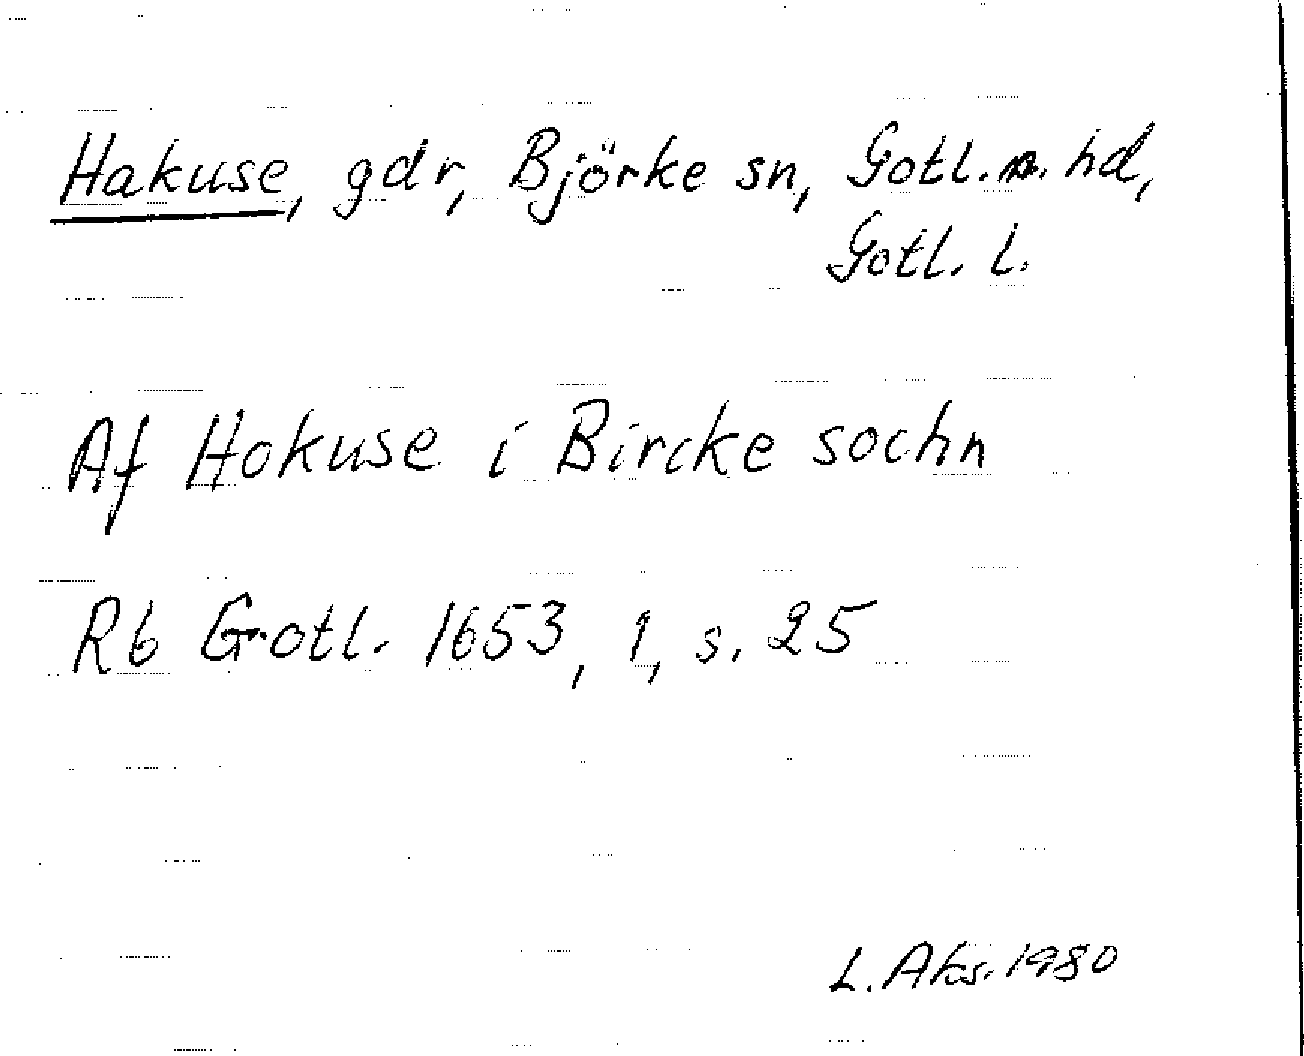 Hakuse, gdr, Björke sn, Gotl. n. hd,
Gotl. l.
Af Hokuse i Bircke sochn
Rb Gotl. 1653, 1, s. 25
L. Aks. 1980